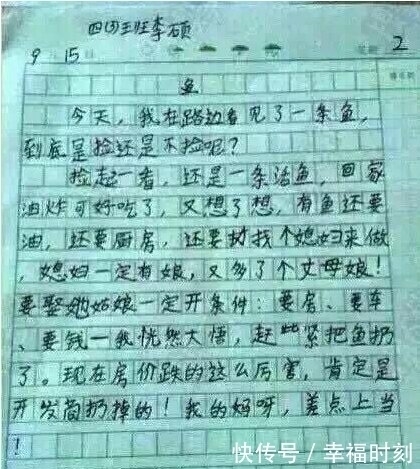 四(3)班李硕
9 15 2
鱼
今天,我在路边看见了一条鱼,
到底是捡还是不捡呢?
捡起一看,还是一条活鱼,回家
油炸可好吃了,又想了想,有鱼还要
油,还要厨房,还要找个媳妇来做
,媳妇一定有娘,又多了个丈母娘!
要娶她姑娘一定开条件:要房、要车
、要钱一我恍然大悟,赶紧把鱼扔
了。现在房价跌的这么厉害,肯定是
开发商扔掉的!我的妈呀,差点上当
!
快传号/幸福时刻